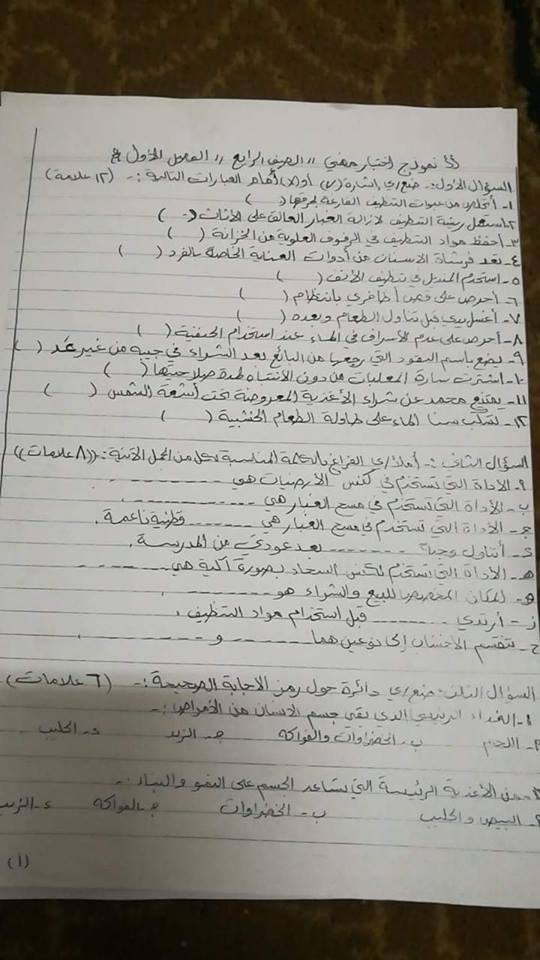 (( نموذج اختبار مهني )) الصف الرابع (( الفصل الأول ))
السؤال الأول :- ضع/ي إشارة (✓) أو (x) أمام العبارات التالية :- (١٢ علامة)
١- أتخلص من عبوات التنظيف الفارغة بحرقها ( )
٢- استعمل ريشة التنظيف لإزالة الغبار العالق على الأثاث ( )
٣- أحفظ مواد التنظيف في الرفوف العلوية من الخزانة ( )
٤- تعد فرشاة الاسنان من أدوات العناية الخاصة بالفرد ( )
٥- استخدم المنديل في تنظيف الأنف ( )
٦- أحرص على قص أظافري بانتظام ( )
٧- أغسل يدي قبل تناول الطعام وبعده ( )
٨- أحرص على عدم الأسراف في الماء عند استخدام الحنفية ( )
٩- يضع باسم النقود التي رجعها من البائع بعد الشراء في جيبه من غير عَد ( )
١٠- اشترت سارة المعلبات من دون الانتباه لمدة صلاحيتها ( )
١١- يمتنع محمد عن شراء الأغذية المعروضة تحت أشعة الشمس ( )
١٢- تسكب سنا الماء على طاولة الطعام الخشبية ( )
السؤال الثاني :- أملأ/ي الفراغ بالكلمة المناسبة لكل من الجمل الآتية :- ((٨ علامات))
أ- الأداة التي تستخدم في كنس الأرضيات هي -------
ب- الأداة التي تستخدم في مسح الغبار هي -------
ج- الأداة التي تستخدم في مسح الغبار هي ------- قطنية ناعمة.
د- أتناول وجبة ------- بعد عودتي من المدرسة.
هـ- الأداة التي تستخدم لكنس السجاد بصورة آلية هي -------
و- المكان المخصص للبيع والشراء هو -------
ز- أرتدي ------- قبل استخدام مواد التنظيف.
ح- تنقسم الأسنان إلى نوعين هما ------- و -------
السؤال الثالث :- ضع/ي دائرة حول رمز الاجابة الصحيحة :- (٦ علامات)
١- الغذاء الرئيسي الذي يقي جسم الانسان من الأمراض :-
أ- اللحم ب- الخضراوات والفواكه ج- الزبد د- الحليب
٢- من الأغذية الرئيسة التي تساعد الجسم على النمو والبناء :-
أ- البيض والحليب ب- الخضراوات ج- الفواكه د- الزيت
(١)